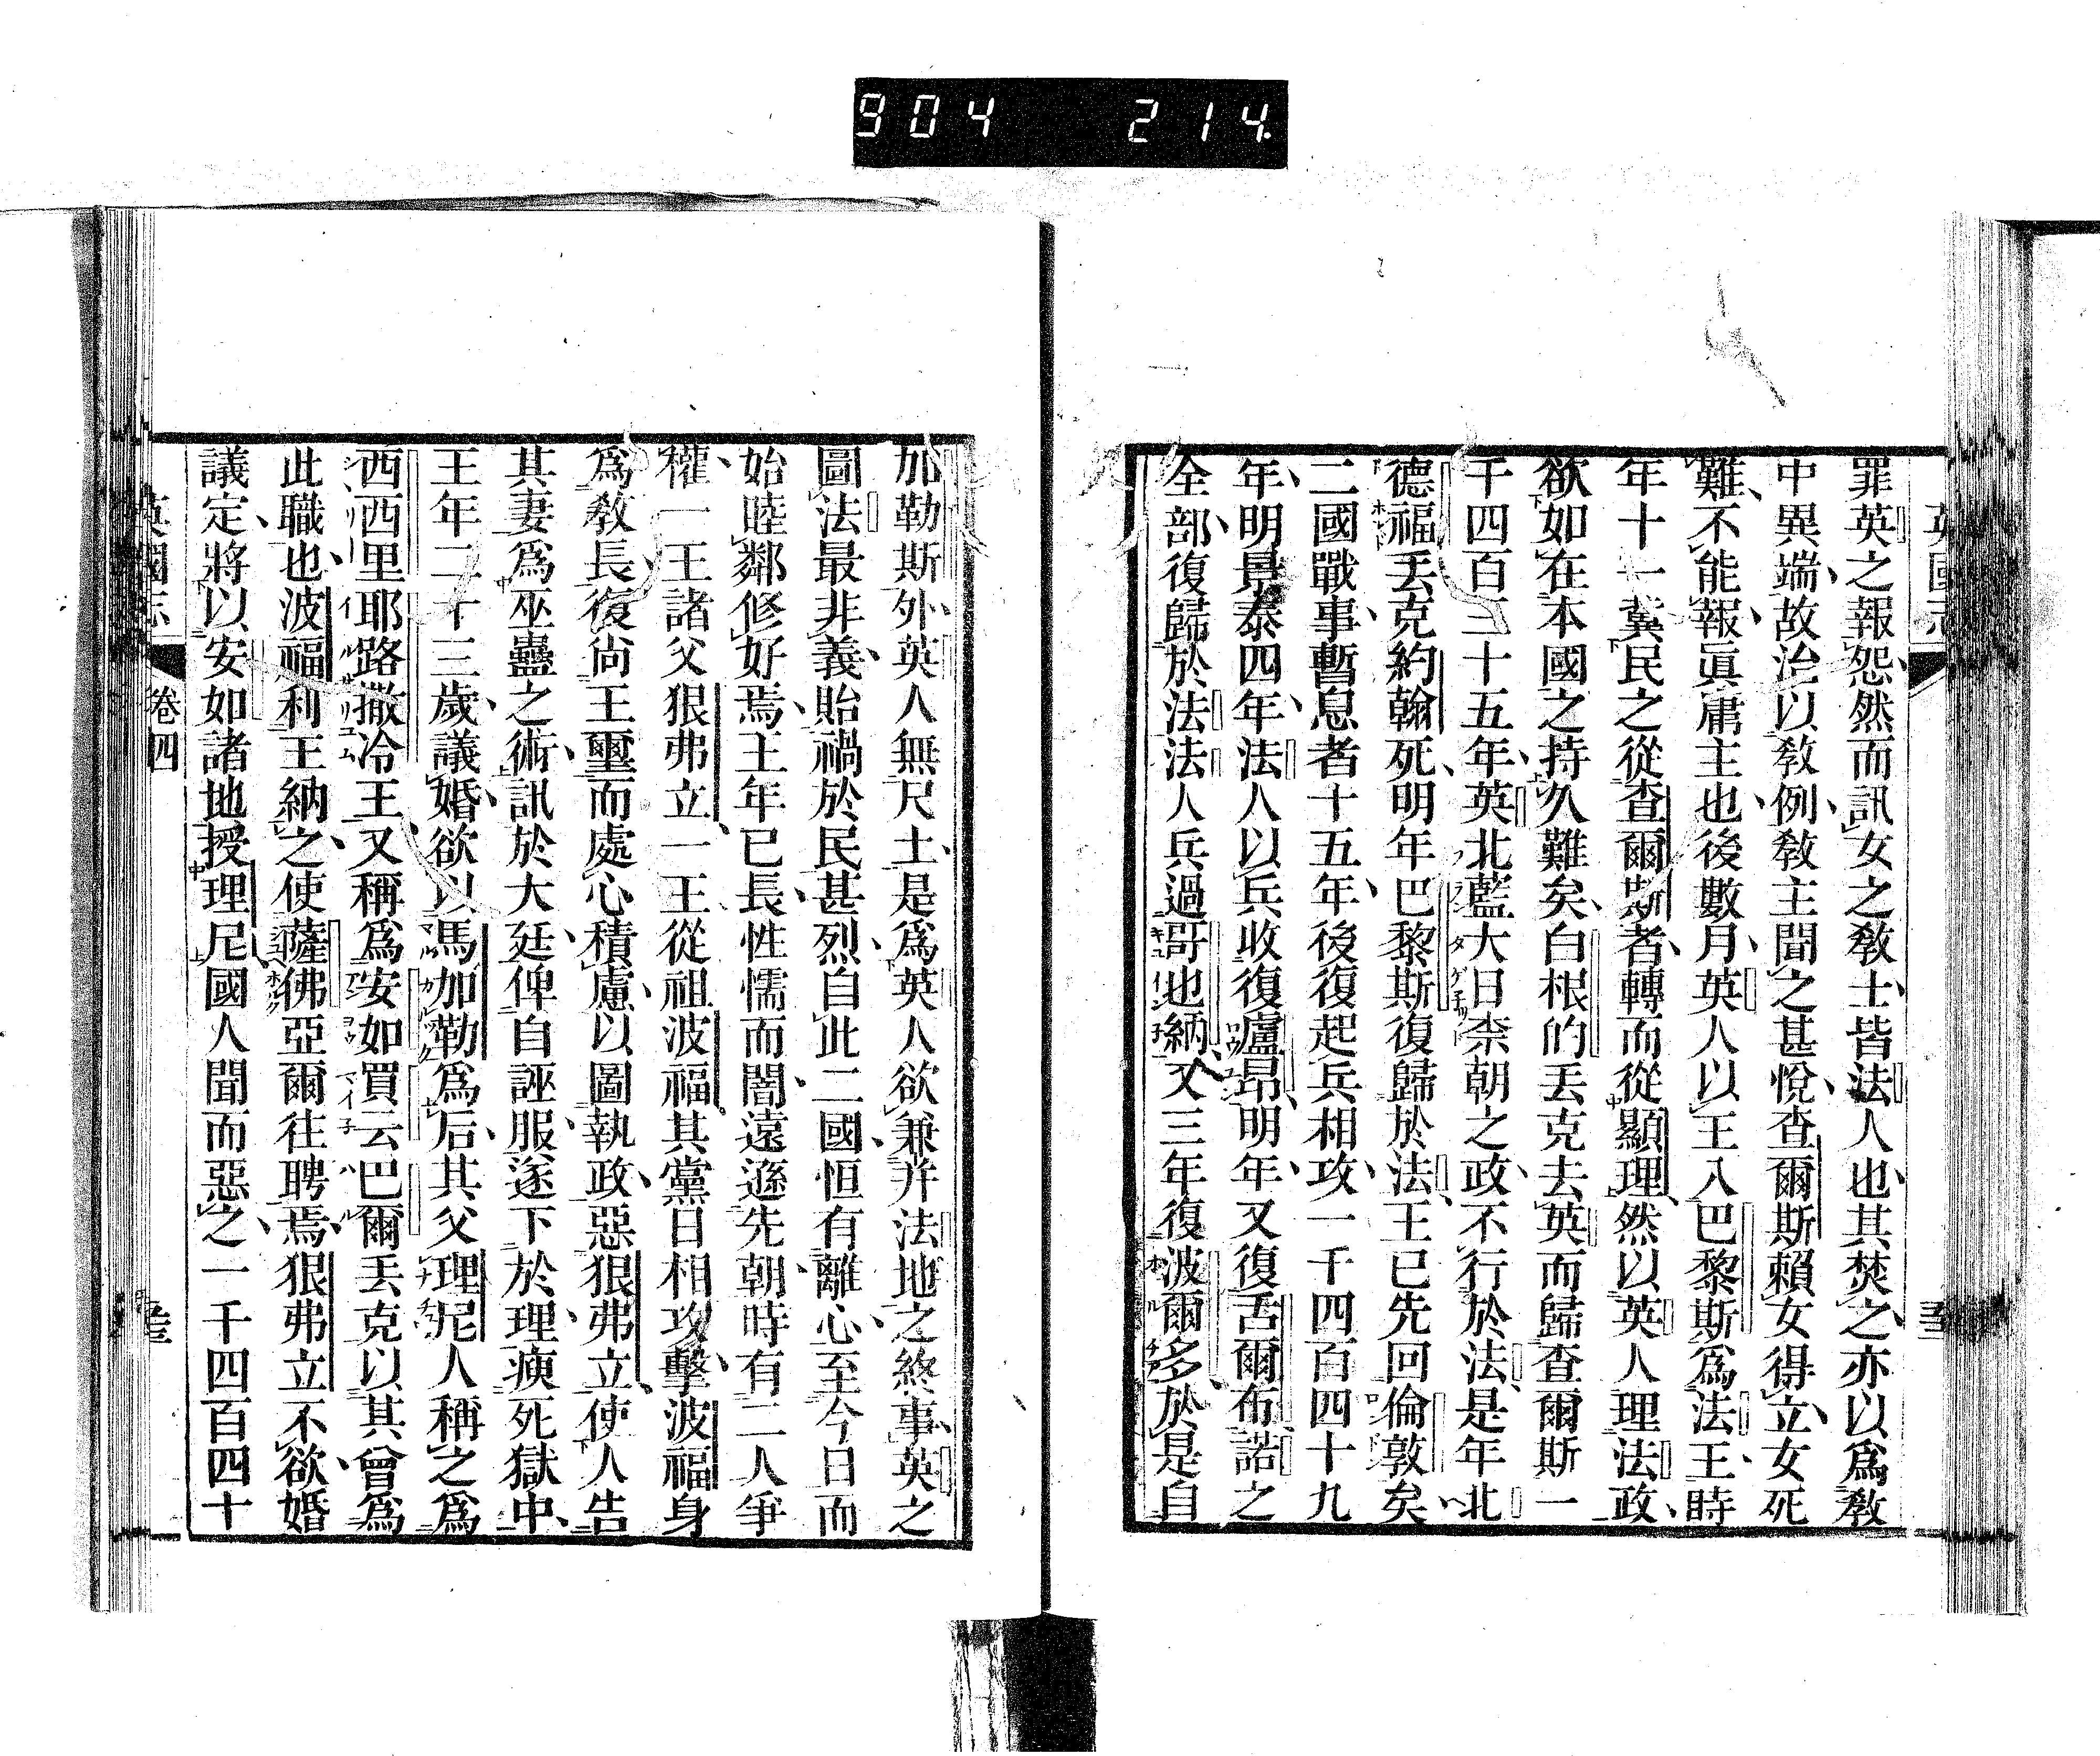 904 214
罪英之報怨然而訊女之敎士皆法人也其焚之亦以爲敎
中異端故治以敎例敎主聞之甚悅查爾斯賴女得立女死
難不能報眞庸主也後數月英人以王入巴黎斯爲法王時
年十一冀民之從查爾斯者轉而從顯理然以英人理法政
欲如在本國之持久難矣白根的丟克去英而歸查爾斯一
千四百三十五年英北藍大日柰朝之政不行於法是年北
德福丟克約翰死明年巴黎斯復歸於法王已先回倫敦矣
二國戰事暫息者十五年後復起兵相攻一千四百四十九
年明景泰四年法人以兵收復盧昂明年又復舌爾布諾之
全部復歸於法法人兵過哥也納又三年復波爾多於是自
加勒斯外英人無尺土是爲英人欲兼并法地之終事英之
圖法最非義貽禍於民甚烈自此二國恒有離心至今日而
始睦鄰修好焉王年已長性懦而闇遠遜先朝時有二人爭
權一王諸父狠弗立一王從祖波福其黨日相攻擊波福身
爲敎長復尙王璽而處心積慮以圖執政惡狠弗立使人告
其妻爲巫蠱之術訊於大廷俾自誣服遂下於理瘐死獄中
王年二十三歲議婚欲以馬加勒爲后其父理尼人稱之爲
西西里耶路撒冷王又稱爲安如買云巴爾丟克以其曾爲
此職也波福利王納之使薩佛亞爾往聘焉狠弗立不欲婚
議定將以安如諸地授理尼國人聞而惡之一千四百四十
英國志
卷四